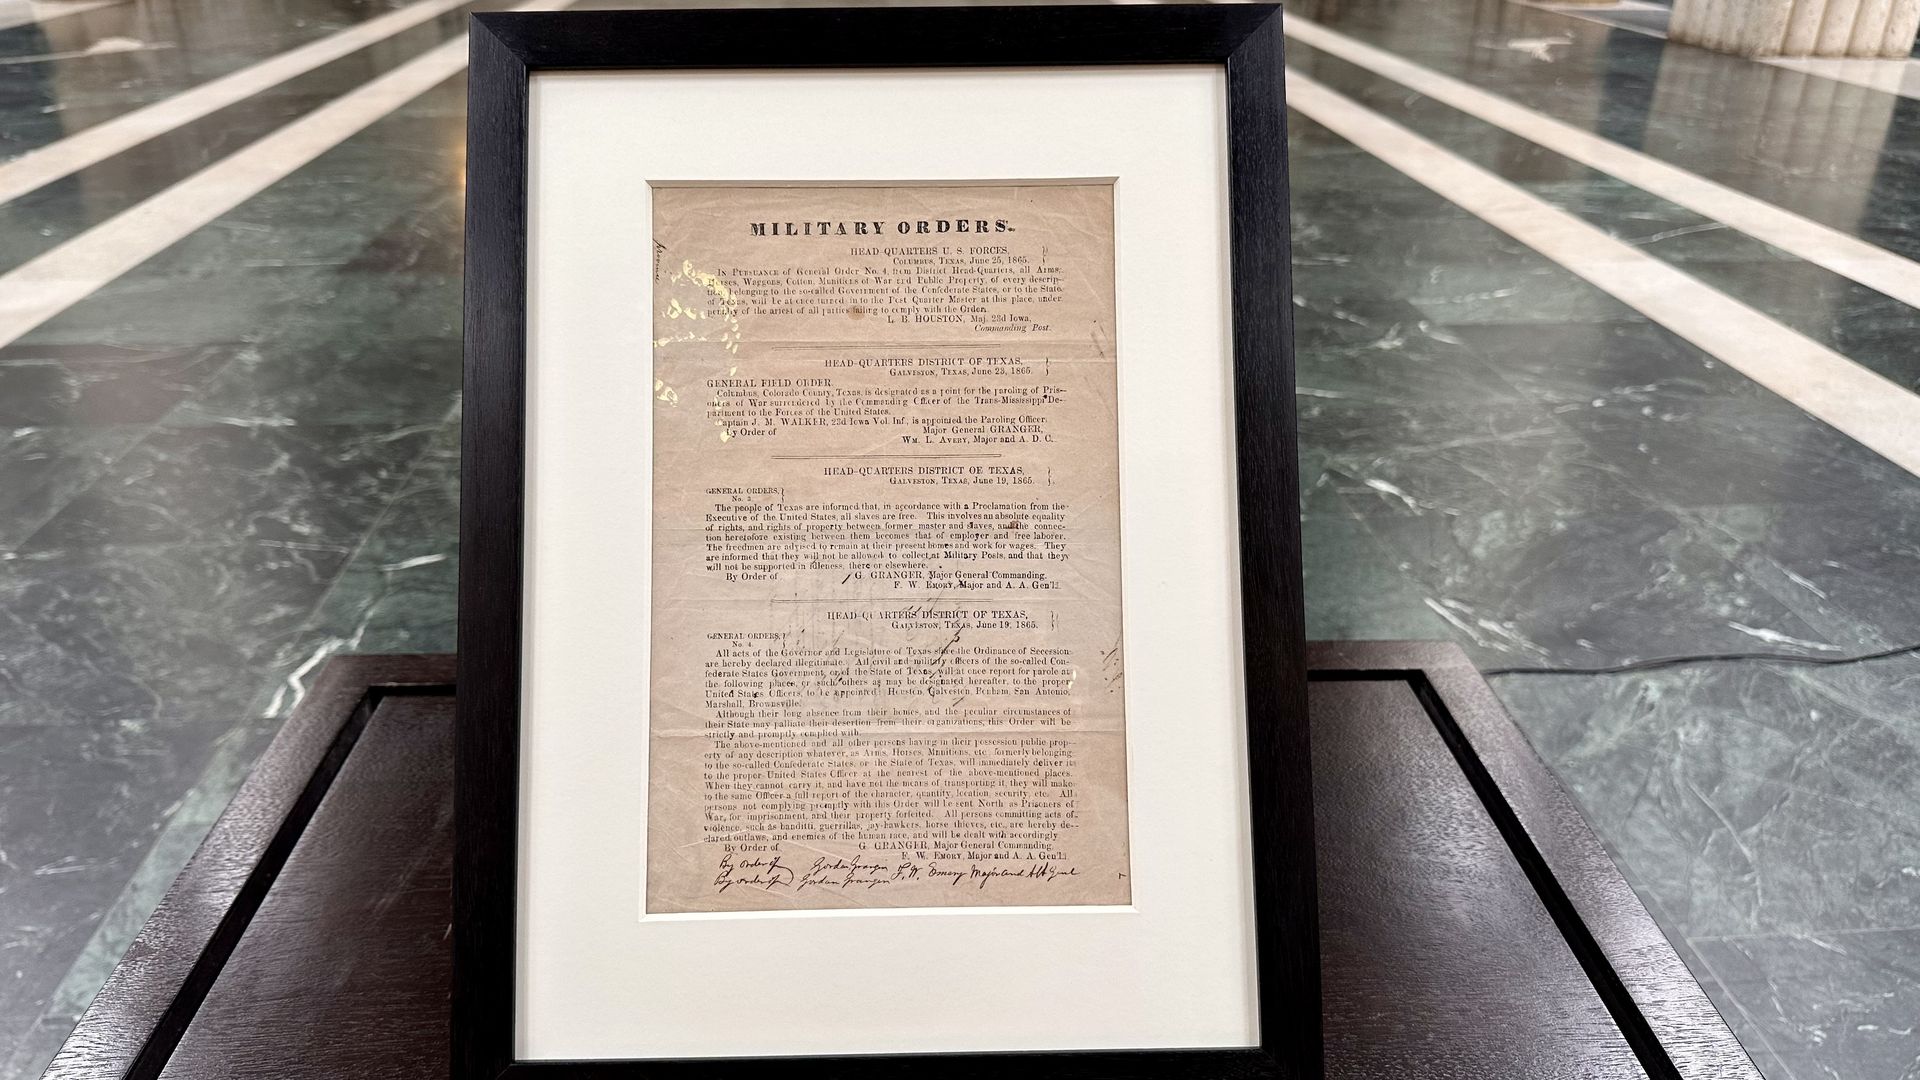 MILITARY ORDERS.
HEAD-QUARTERS U. S. FORCES,
COLUMBUS, TEXAS, June 25, 1865.
IN PURSUANCE of General Order No. 4, from District Head-Quarters, all Arms,
Horses, Waggons, Cotton, Munitions of War and Public Property, of every descrip-
tion, belonging to the so-called Government of the Confederate States, or to the State
of Texas, will be at once turned in to the Post Quarter Master at this place, under
penalty of the arrest of all parties failing to comply with the Order.
L. B. HOUSTON, Maj. 23d Iowa,
Commanding Post.
HEAD-QUARTERS DISTRICT OF TEXAS,
GALVESTON, TEXAS, June 23, 1865.
GENERAL FIELD ORDER.
Columbus, Colorado County, Texas, is designated as a point for the paroling of Pris-
oners of War surrendered by the Commanding Officer of the Trans-Mississippi De-
partment to the Forces of the United States.
Captain J. M. WALKER, 23d Iowa Vol. Inf., is appointed the Paroling Officer.
By Order of Major General GRANGER,
WM. L. AVERY, Major and A. D. C.
HEAD-QUARTERS DISTRICT OE TEXAS,
GALVESTON, TEXAS, June 19, 1865.
GENERAL ORDERS,
No. 3.
The people of Texas are informed that, in accordance with a Proclamation from the
Executive of the United States, all slaves are free. This involves an absolute equality
of rights, and rights of property between former master and slaves, and the connec-
tion heretofore existing between them becomes that of employer and free laborer.
The freedmen are advised to remain at their present homes and work for wages. They
are informed that they will not be allowed to collect at Military Posts, and that they
will not be supported in idleness, there or elsewhere.
By Order of G. GRANGER, Major General Commanding.
F. W. EMORY, Major and A. A. Gen'l.
HEAD-QUARTERS DISTRICT OF TEXAS,
GALVESTON, TEXAS, June 19, 1865.
GENERAL ORDERS,
No. 4.
All acts of the Governor and Legislature of Texas since the Ordinance of Secession
are hereby declared illegitimate. All civil and military officers of the so-called Con-
federate States Government, or of the State of Texas, will at once report for parole at
the following places, or such others as may be designated hereafter, to the proper
United States Officers, to be appointed: Houston, Galveston, Bonham, San Antonio,
Marshall, Brownsville.
Although their long absence from their homes, and the peculiar circumstances of
their State may palliate their desertion from their organizations, this Order will be
strictly and promptly complied with.
The above-mentioned and all other persons having in their possession public prop-
erty of any description whatever, as Arms, Horses, Munitions, etc. formerly belonging
to the so-called Confederate States, or the State of Texas, will immediately deliver it
to the proper United States Officer at the nearest of the above-mentioned places.
When they cannot carry it, and have not the means of transporting it, they will make
to the same Officer a full report of the character, quantity, location, security, etc. All
persons not complying promptly with this Order will be sent North as Prisoners of
War, for imprisonment, and their property forfeited. All persons committing acts of
violence, such as banditti, guerrillas, jay-hawkers, horse thieves, etc., are hereby de-
clared outlaws, and enemies of the human race, and will be dealt with accordingly.
By Order of G. GRANGER, Major General Commanding.
F. W. EMORY, Major and A. A. Gen'l.
By order of Gordon Granger
By order of Gordon Granger F. W. Emery Major and AA Genl